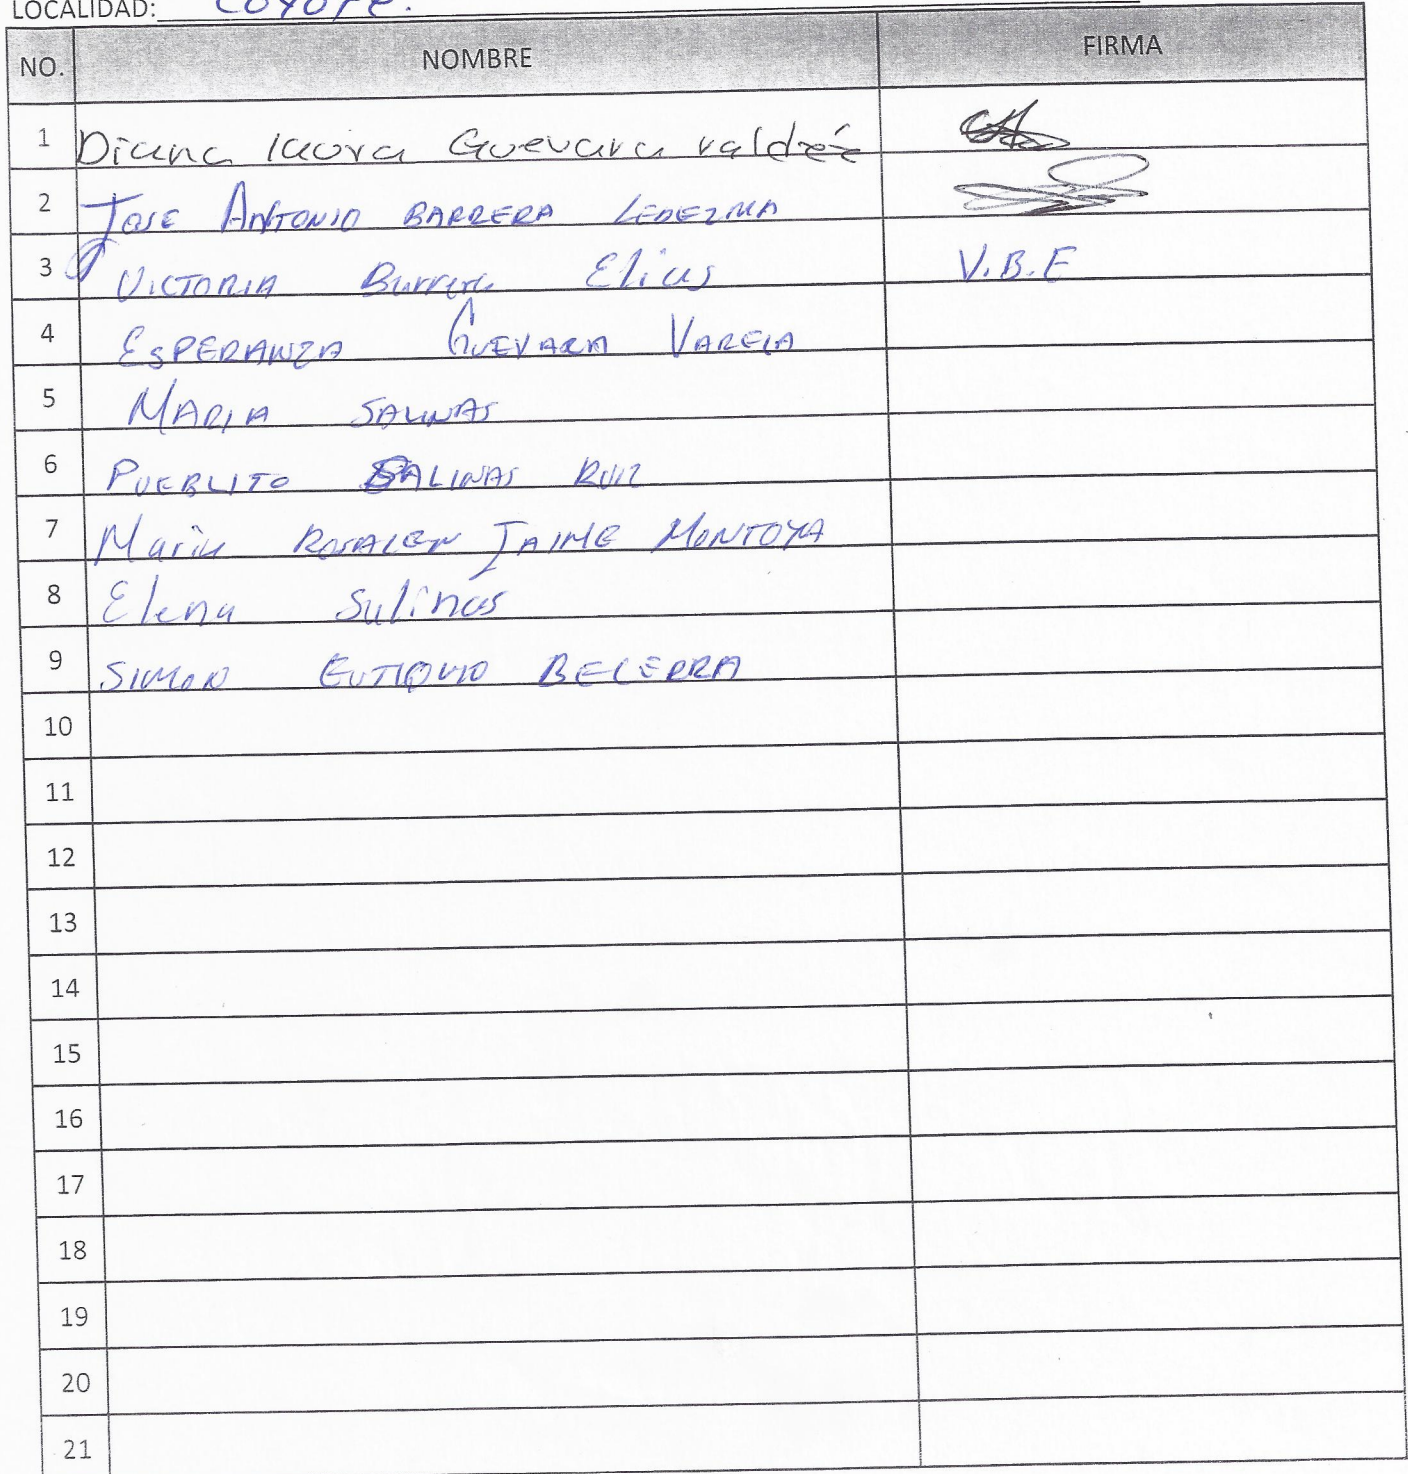 LOCALIDAD: COYOTE.
NO. NOMBRE FIRMA
1 Diana laura Guevara valdez
2 JOSE ANTONIO BARRERA LEDEZMA
3 VICTORIA Barrera Elias V.B.E
4 ESPERANZA GUEVARA VARELA
5 MARIA SALINAS
6 PUEBLITO SALINAS RUIZ
7 Maria ROSALEN JAIME MONTOYA
8 Elena Salinas
9 SIMON EUTIQUIO BECERRA
10
11
12
13
14
15
16
17
18
19
20
21